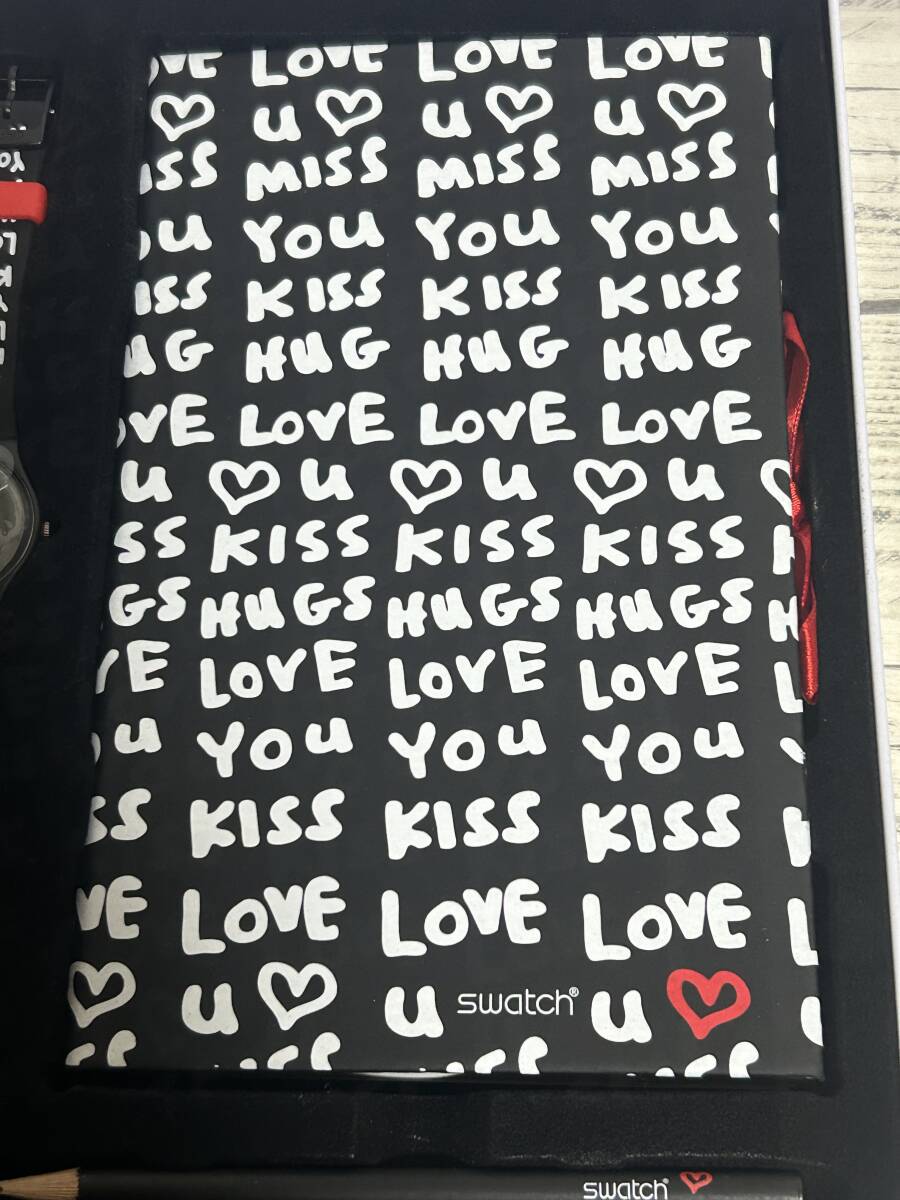 OVE LOVE LOVE LOVE
♡ u ♡ u ♡ u ♡
ISS MISS MISS MISS
OU YOU YOU YOU
ISS KISS KISS KISS
UG HUG HUG HUG
OVE LOVE LOVE LOVE
u ♡ u ♡ u ♡ u ♡
SS KISS KISS KISS K
GS HUGS HUGS HUGS H
VE LOVE LOVE LOVE L
u YOU YOU YOU
SS KISS KISS KISS
VE LOVE LOVE LOVE L
♡ u ♡ u swatch® u ♡
swatch ♡